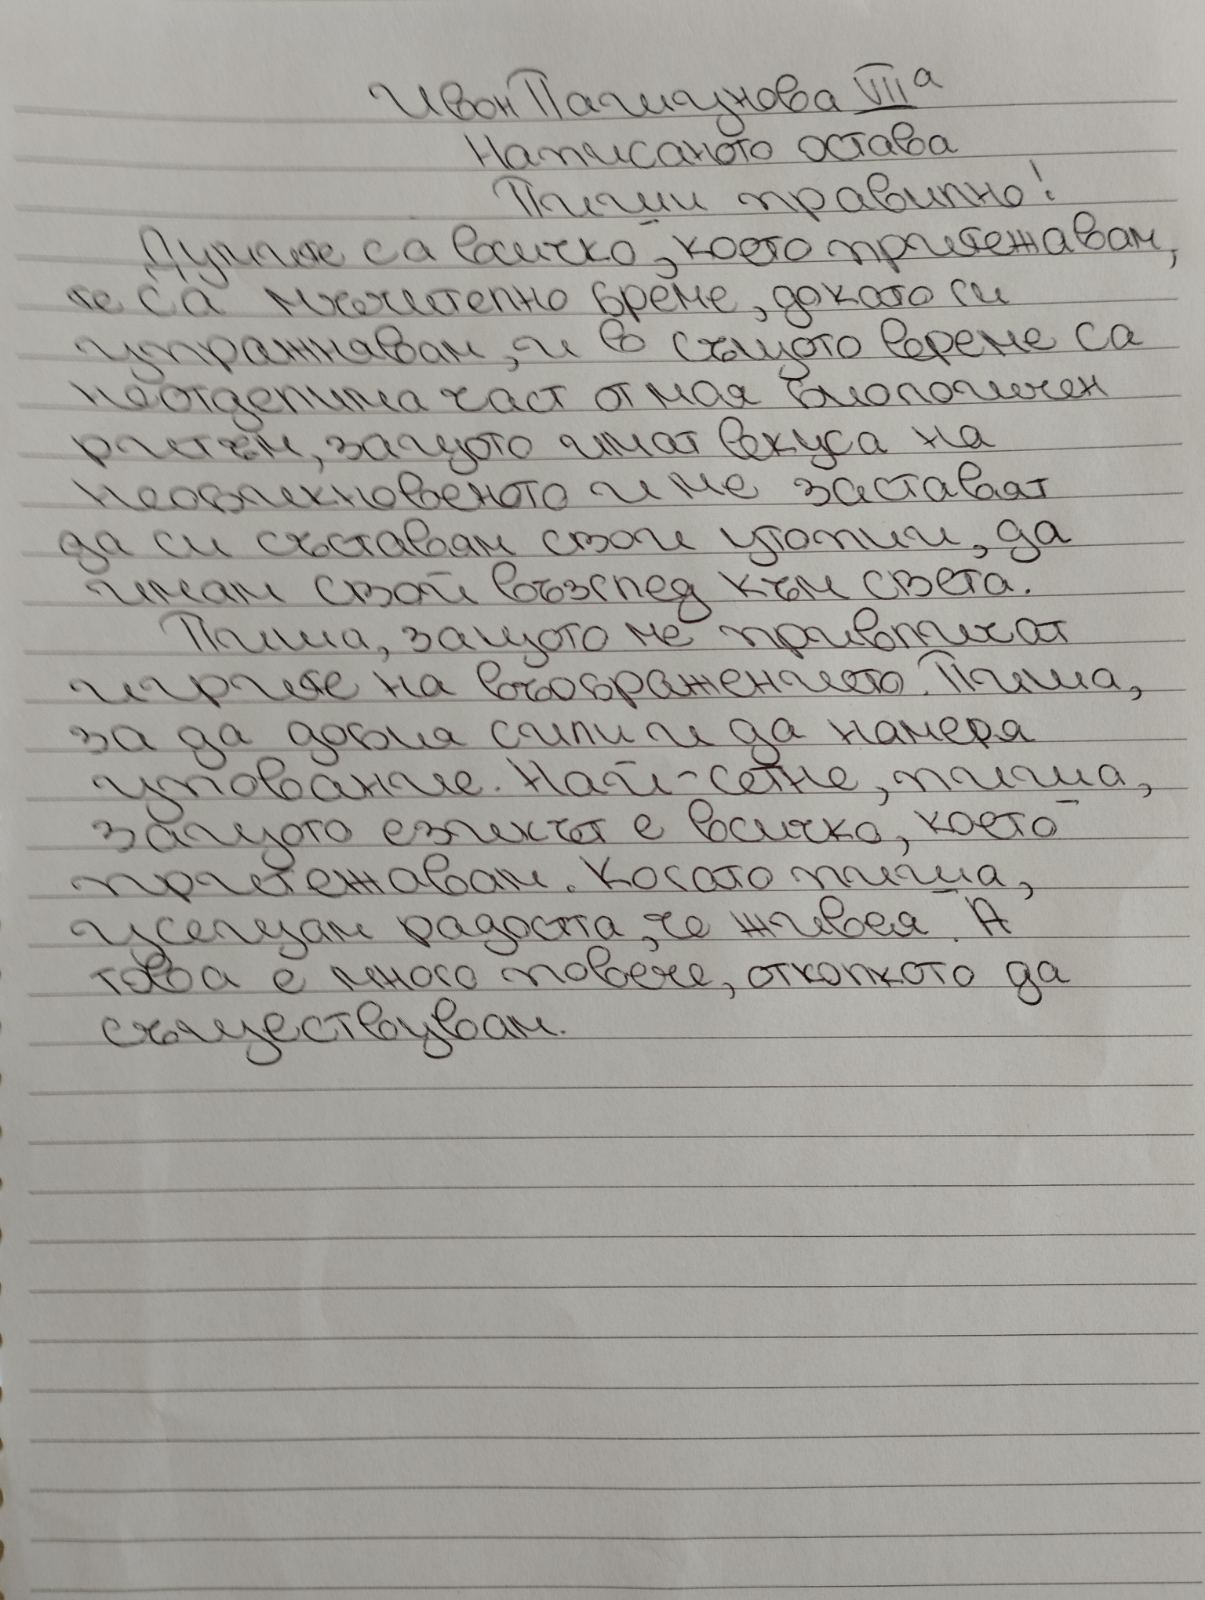 Ивон Пашунова VIIа
Написаното остава
Пиши правилно!
Думите са всичко, което притежавам,
те са мъчително бреме, докато си
упражнавам, и в същото време са
неотделима част от моя биологичен
ритъм, защото имат вкуса на
необикновеното и ме заставят
да си съставям свои утопии, да
имам свой възглед към света.
Пиша, защото ме привличат
игрите на въображението. Пиша,
за да добия сили и да намеря
упование. Най-сетне, пиша,
защото езикът е всичко, което
притежавам. Когато пиша,
усещам радостта, че живея. А
това е много повече, отколкото да
съществувам.